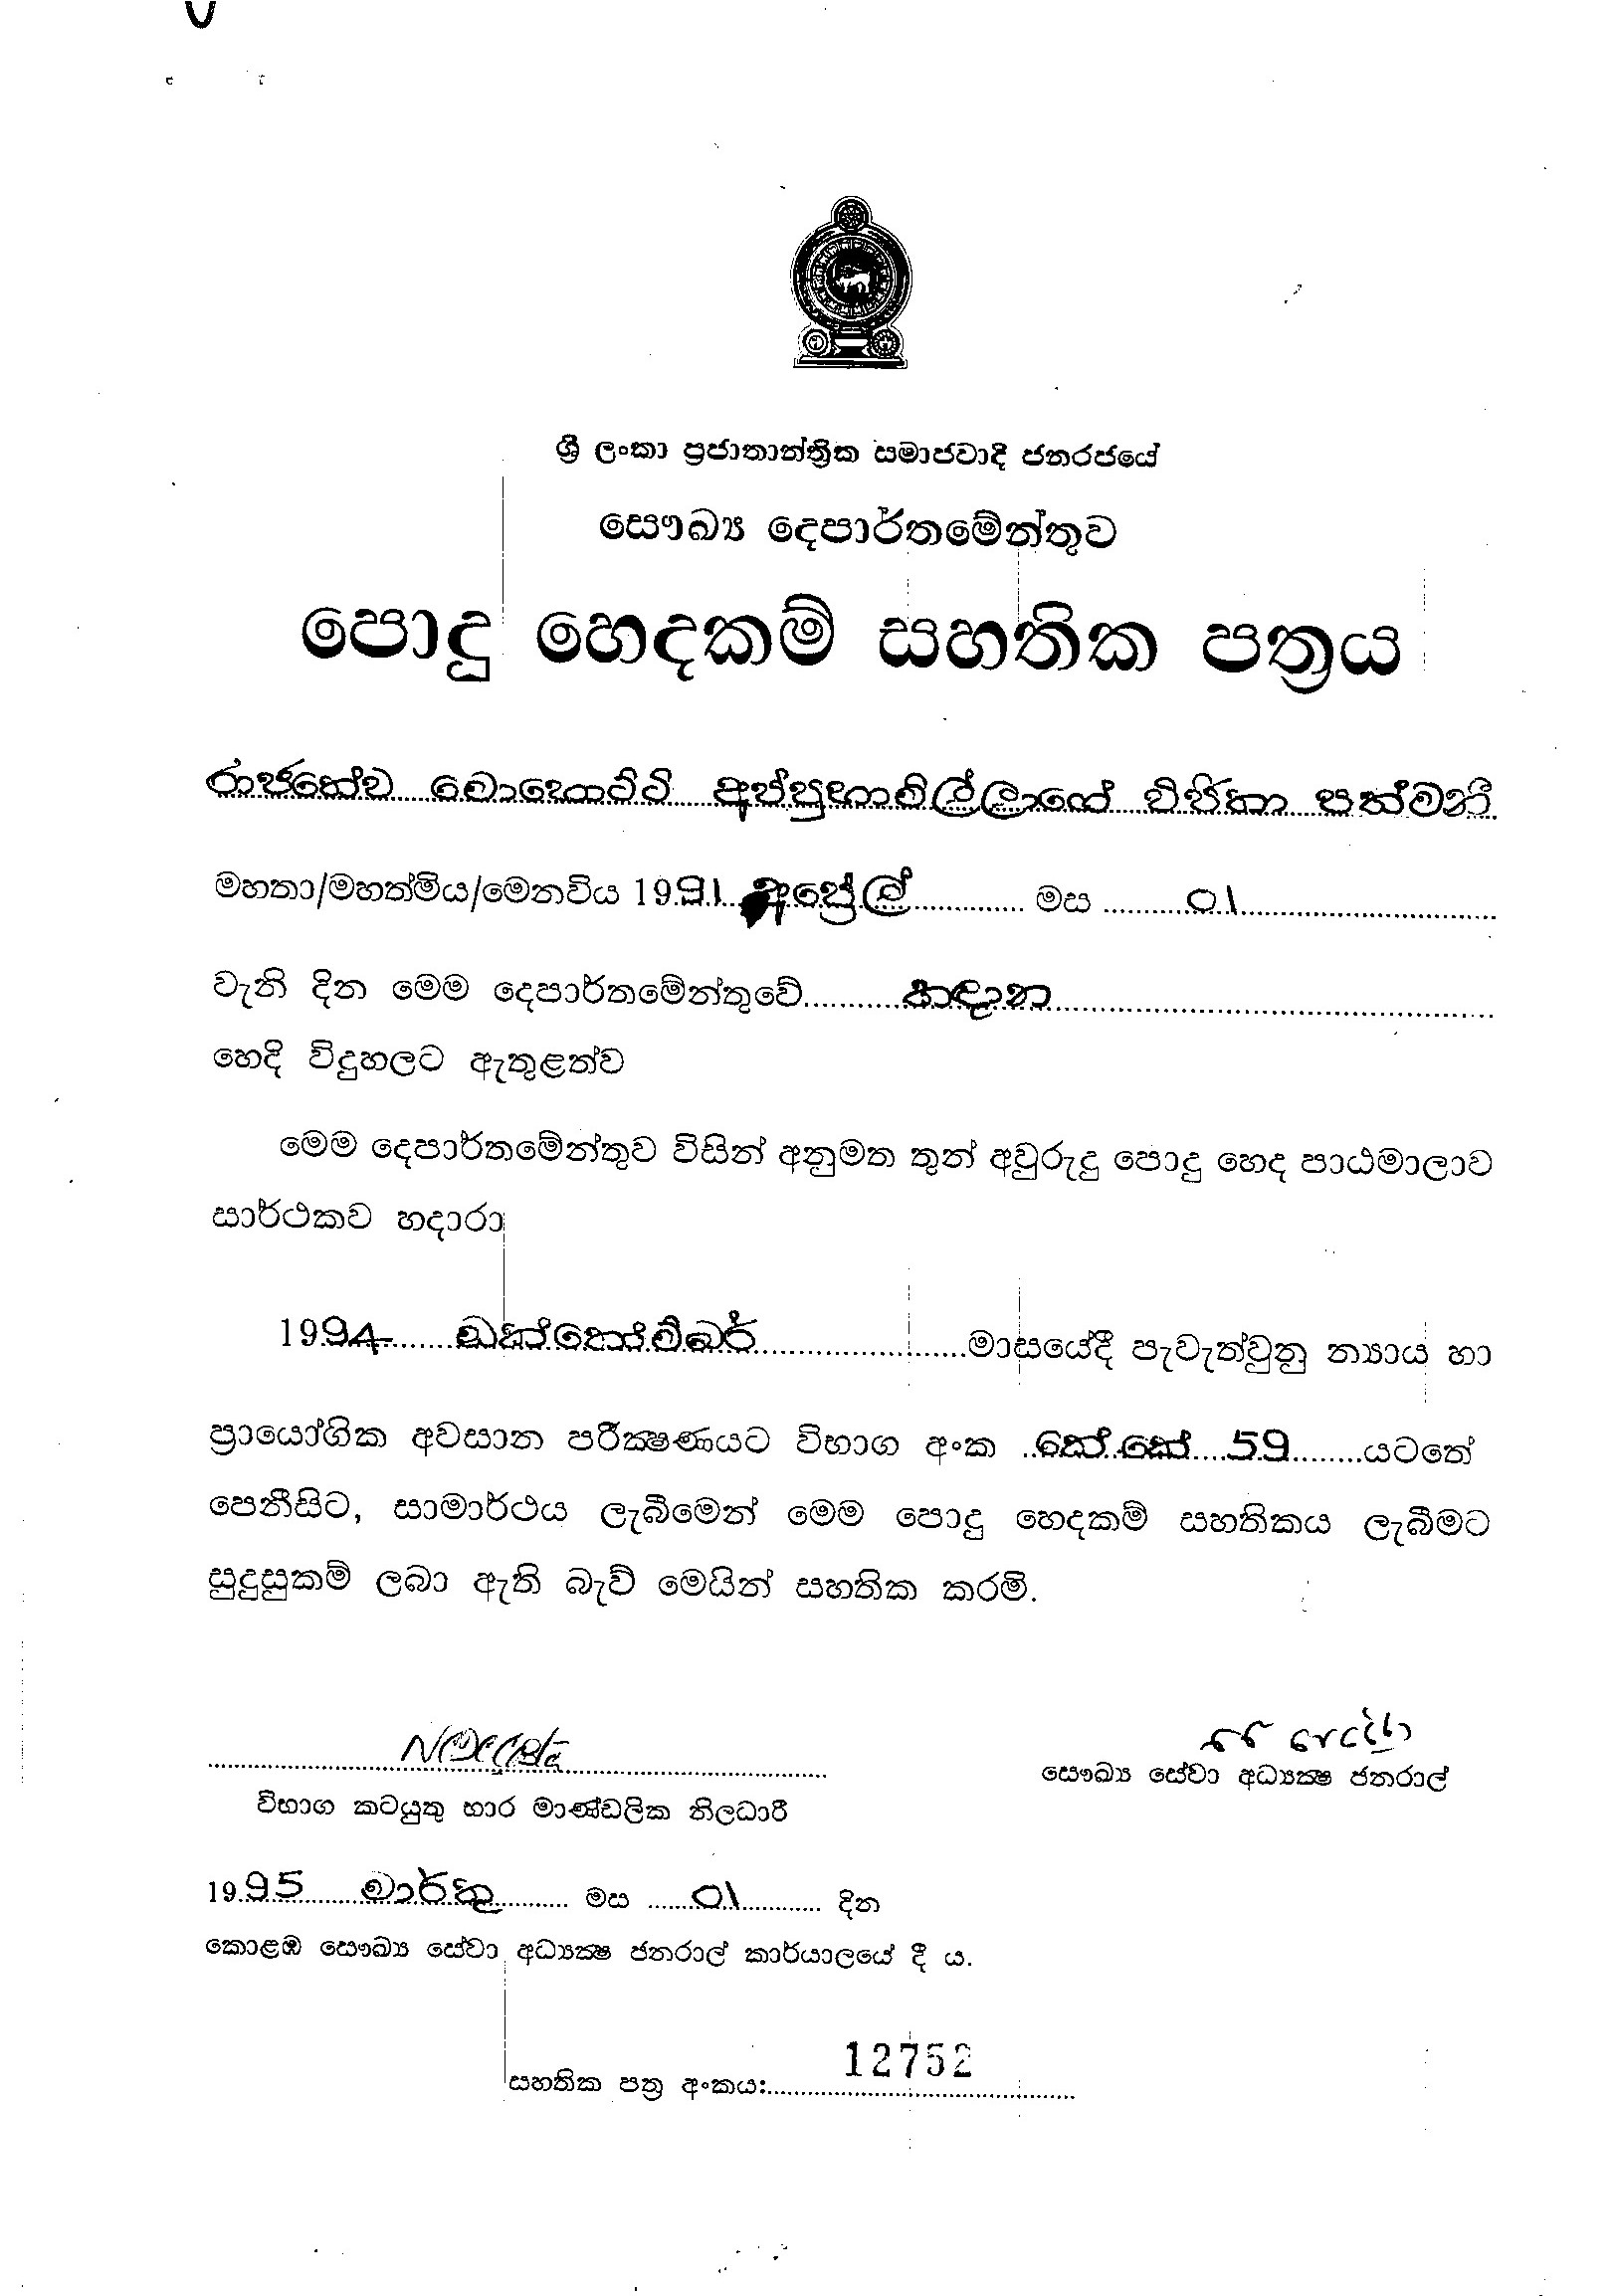 ශ්‍රී ලංකා ප්‍රජාතාන්ත්‍රික සමාජවාදී ජනරජයේ
සෞඛ්‍ය දෙපාර්තමේන්තුව
පොදු හෙදකම් සහතික පත්‍රය
රාජතේව මොහොට්ටි අප්පුහාමිල්ලාගේ විජිතා පත්මනී
මහතා/මහත්මිය/මෙනවිය 1991 අප්‍රේල් මස 01
වැනි දින මෙම දෙපාර්තමේන්තුවේ කඳාන
හෙදි විදුහලට ඇතුළත්ව
මෙම දෙපාර්තමේන්තුව විසින් අනුමත තුන් අවුරුදු පොදු හෙද පාඨමාලාව
සාර්ථකව හදාරා
1994 ඔක්තෝම්බර් මාසයේදී පැවැත්වුනු න්‍යාය හා
ප්‍රායෝගික අවසාන පරීක්‍ෂණයට විභාග අංක කේ.කේ 59 යටතේ
පෙනීසිට, සාමාර්ථය ලැබීමෙන් මෙම පොදු හෙදකම් සහතිකය ලැබීමට
සුදුසුකම් ලබා ඇති බැව් මෙයින් සහතික කරමි.
සෞඛ්‍ය සේවා අධ්‍යක්‍ෂ ජනරාල්
විභාග කටයුතු භාර මාණ්ඩලික නිලධාරී
1995 මාර්තු මස 01 දින
කොළඹ සෞඛ්‍ය සේවා අධ්‍යක්‍ෂ ජනරාල් කාර්යාලයේ දී ය.
සහතික පත්‍ර අංකය: 12752